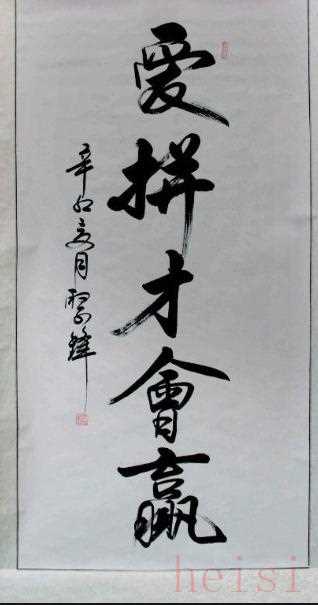 愛拼才會贏
辛卯亥月
heisi